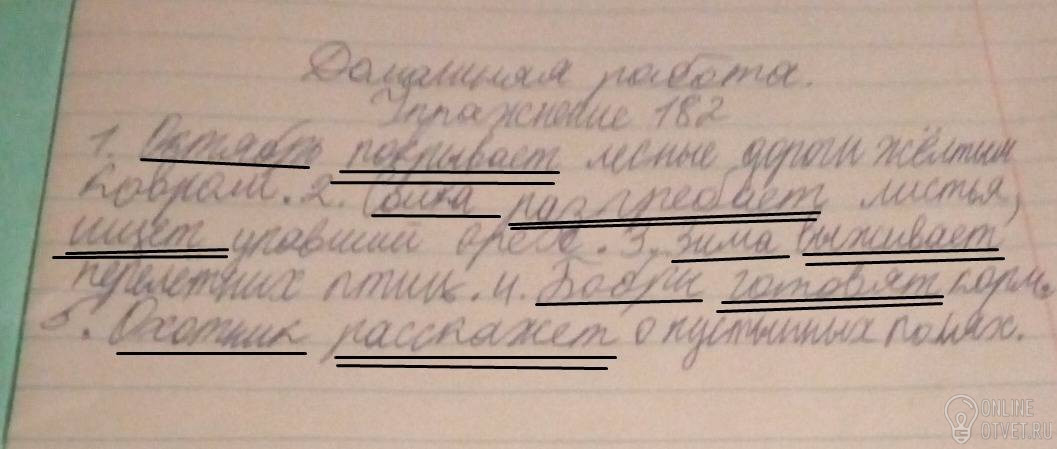 Домашняя работа.
Упражнение 182
1. Октябрь покрывает лесные дороги жёлтым
ковром. 2. Белка разгребает листья,
ищет упавший орех. 3. Зима выживает
перелетних птиц. 4. Бобры готовят корм.
5. Охотник расскажет о пустынных полях.
ONLINE
OTVET.RU